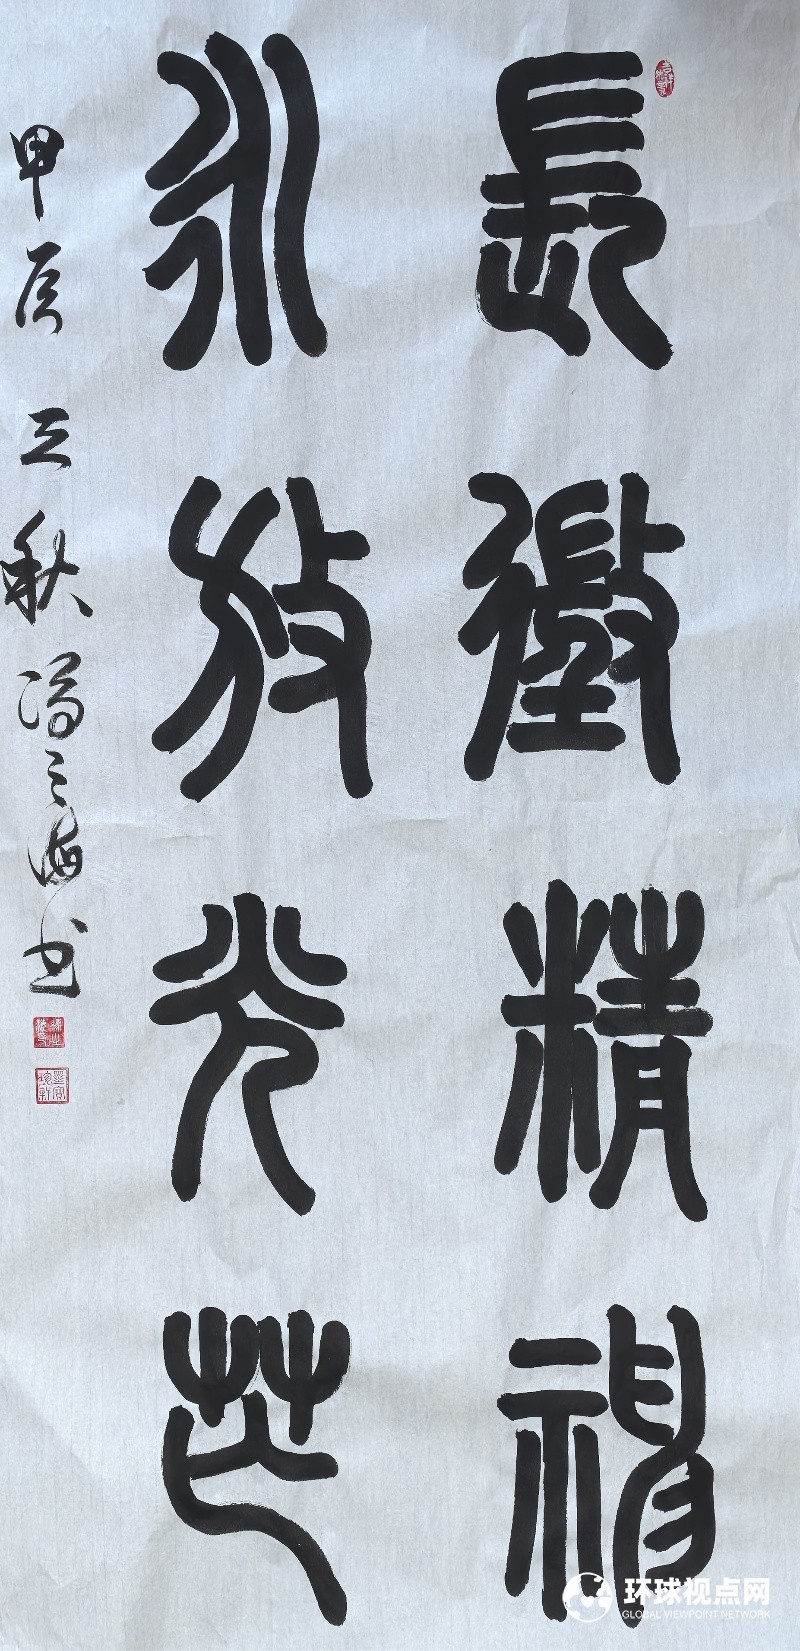 長徵精神
永放光芒
甲辰 秋 冯 海书
环球视点网
GLOBAL VIEWPOINT NETWORK